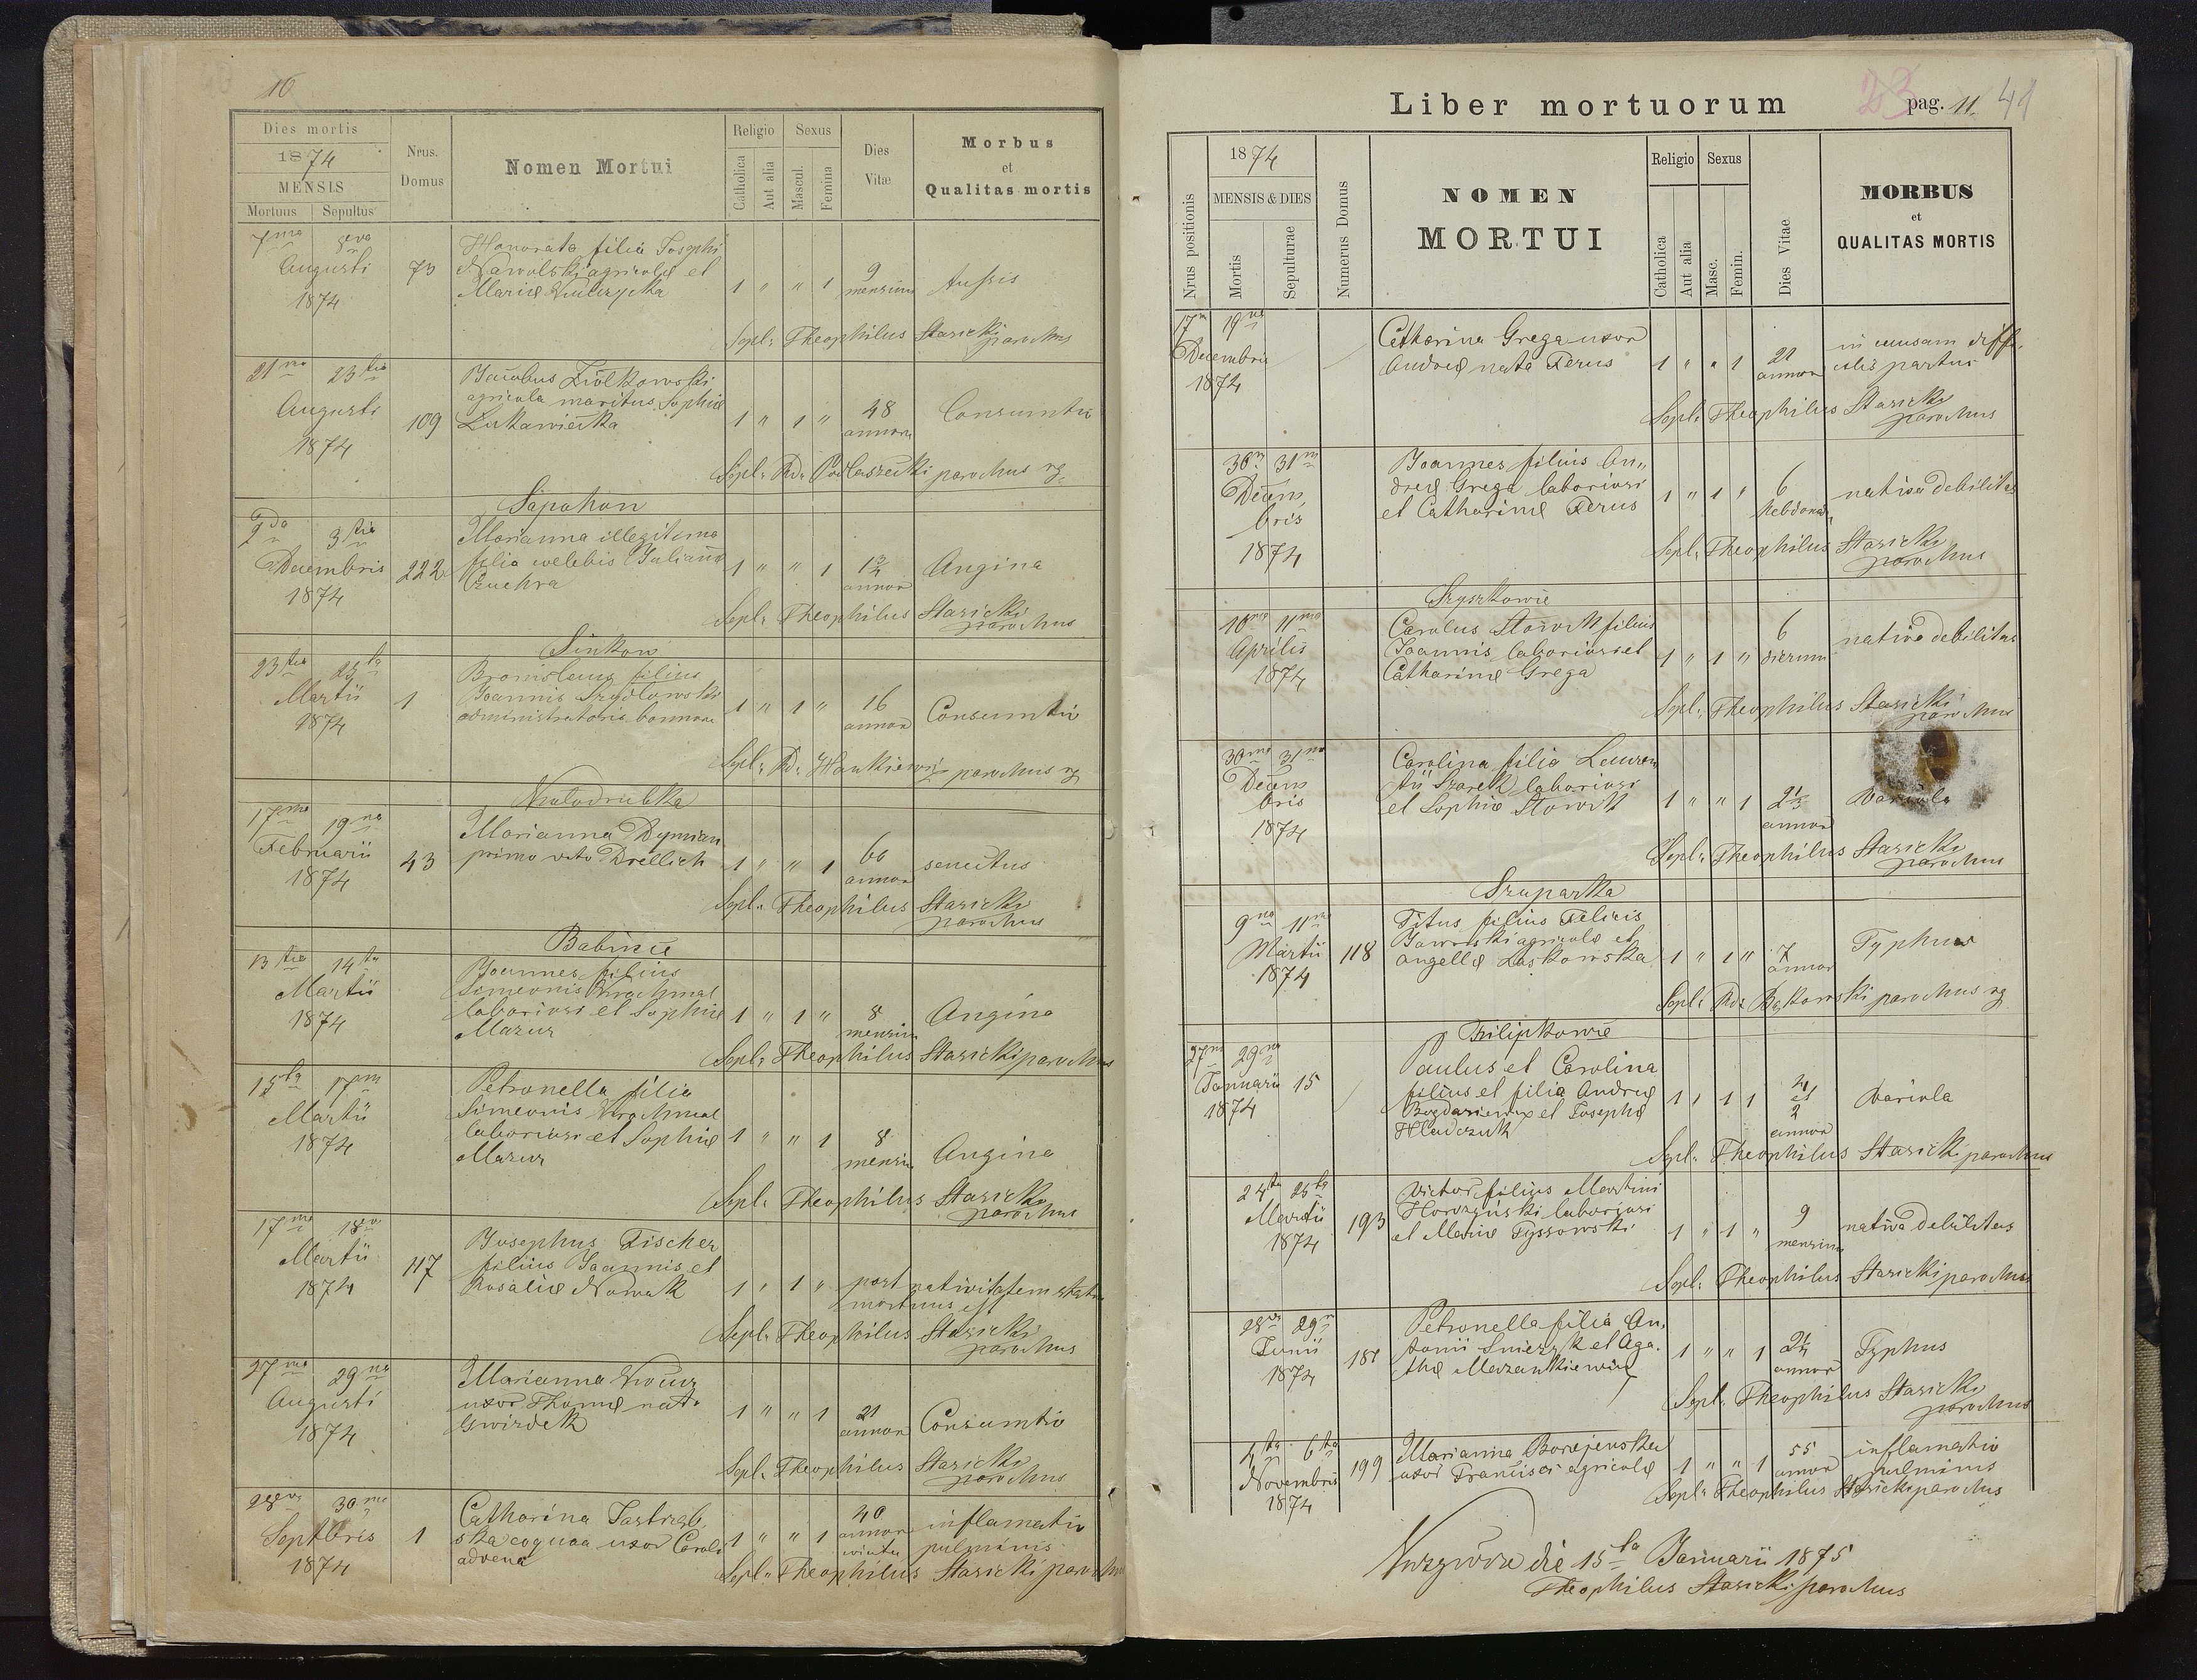 10
Dies mortis
1874
MENSIS
Mortuus Sepultus
Nrus. Domus
Nomen Mortui
Religio
Catholica
Aut alia
Sexus
Mascul.
Femina
Dies Vitæ
Morbus
et
Qualitas mortis
7ma 8va
Augusti
1874
73
Honorata filia Josephi
Nawolski agricolæ et
Mariæ
1 " " 1
9
mensium
Tussis
Sepl: Theophilus Stasicki
parochus
21ma 23tia
Augusti
1874
109
Jacobus Ziółkowski
agricola maritus Sophiæ
Łukawiecka
1 " 1 "
48
annorum
Consumtio
Sepl: Rd: Podlaszecki parochus rg.
Sapohon
2da 3tia
Decembris
1874
222
Marianna illegitima
filia coelebis Julianna
1 " " 1
1 3/4
annor
Angina
Sepl: Theophilus Stasicki
parochus
Sinkow
23tia 25ta
Martii
1874
1
Bronislaus filius
Joannis Szydłowski
administratoris bonnorum
1 " 1 "
16
annor
Consumtio
Sepl: Rd: Hankiewicz parochus rg
Wołodrubka
17ma 19na
Februarii
1874
43
Marianna Dymian
primo voto Drellich
1 " " 1
60
annor
senectus
Sepl: Theophilus Stasicki
parochus
Babince
13tia 14ta
Martii
1874
Joannes filius
Simeonis Krochmal
laboriosi et Sophiæ
Mazur
1 " 1 "
8
mensium
Angina
Sepl: Theophilus Stasicki parochus
15ta 17ma
Martii
1874
Petronella filia
Simeonis Krochmal
laboriosi et Sophiæ
Mazur
1 " " 1
8
mensiu
Angina
Sepl: Theophilus Stasicki
parochus
17ma 18va
Martii
1874
117
Josephus Fischer
filius Joannis et
Rosaliæ Nowak
1 " 1 "
post nativitatem statim
mortuus est
Sepl: Theophilus Stasicki
parochus
27ma 29na
Augusti
1874
Marianna
uxor Thomæ nata
Gwizdek
1 " " 1
21
annor
Consumtio
Sepl: Theophilus Stasicki
parochus
28va 30ma
Septbris
1874
1
Catharina Jastrzęb
ska coquaa uxor Caroli
advena
1 " " 1
40
annor
inflamatio
pulminis
Sepl: Theophilus Stasicki parochus
Liber mortuorum
23
pag. 11. 41
Nrus positionis
1874
MENSIS & DIES
Mortis
Sepulturae
Numerus Domus
NOMEN
MORTUI
Religio
Catholica
Aut alia
Sexus
Masc.
Femin.
Dies Vitae
MORBUS
et
QUALITAS MORTIS
17ma 19na
Decembris
1874
Catharina Grega uxor
Andreæ nata Ferus
1 " " 1
21
annor
in causam diffi-
cilis partus
Sepl: Theophilus Stasicki
parochus
30ma 31ma
Decem
bris
1874
Joannes filius An„
dreæ Grega laboriosi
et Catharinæ Ferus
1 " 1 "
6
hebdomad
nativa debilitas
Sepl: Theophilus Stasicki
parochus
Szyszkowie
10ma 11ma
Aprilis
1874
Carolus Storek filius
Joannis laboriosi et
Catharinæ Grega
1 " 1 "
6
dierum
nativa debilitas
Sepl: Theophilus Stasicki
parochus
30ma 31ma
Decem
bris
1874
Carolina filia Lauren
tii Szarek laboriosi
et Sophiæ Storek
1 " " 1
2 1/3
annor
variola
Sepl: Theophilus Stasicki
parochus
Szuparka
9na 11ma
Martii
1874
118
Titus filius Felicis
Jaworski agricolæ et
Angellæ Laskowska
1 " 1 "
7
annor
Typhus
Sepl: Rd: Bąkowski parochus rg
Filipkowie
27ma 29na
Januarii
1874
15
Paulus et Carolina
filius et filia Andreæ
Bogdasiewicz et Josephæ
Hladczuk
1 " 1 1
4
et
2
annor
variola
Sepl: Theophilus Stasicki parochus
24ta 25ta
Martii
1874
193
Victor filius Martini
Horczyński laboriosi
et Mariæ Tyssowski
1 " 1 "
9
mensium
nativa debilitas
Sepl: Theophilus Stasicki parochus
28va 29na
Junii
1874
181
Petronella filia An„
tonii Smerzyk et Aga„
thæ Mazankiewicz
1 " " 1
2 1/4
annor
Typhus
Sepl: Theophilus Stasicki
parochus
4ta 6ta
Novembris
1874
199
Marianna Borejewska
uxor Francisci agricolæ
1 " " 1
55
annor
inflamatio
pulminis
Sepl: Theophilus Stasicki parochus
die 15ta Januarii 1875
Theophilus Stasicki parochus